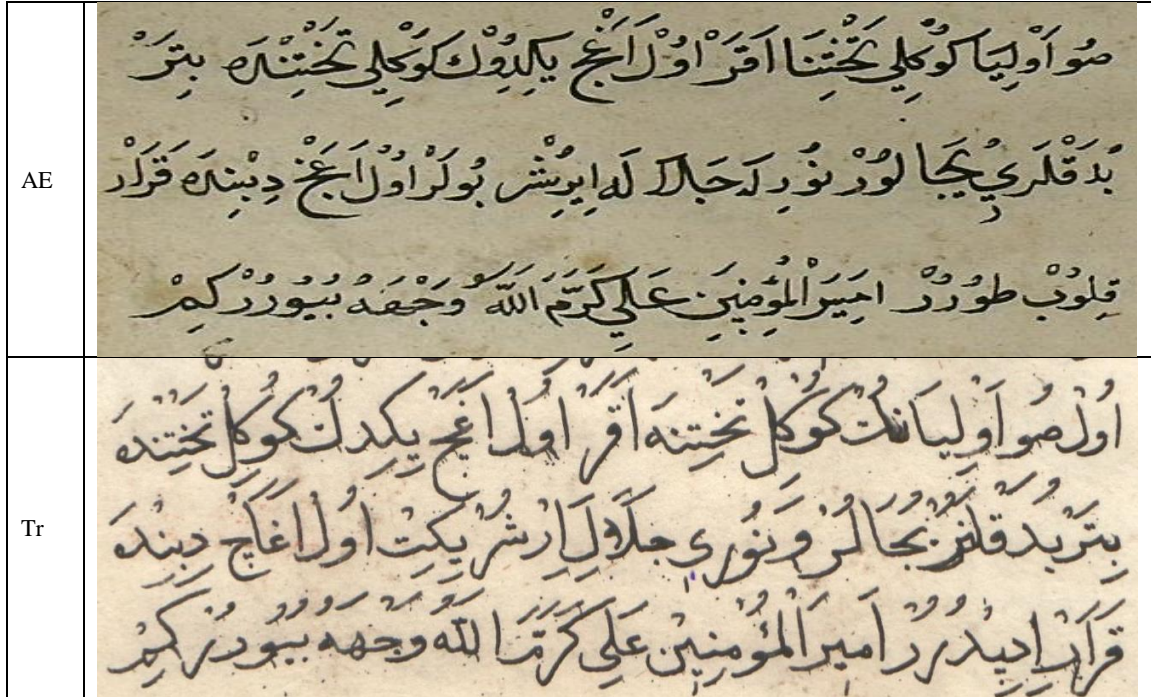 AE
صُو اَوْلِيَا كُوكُلِي تَخْتِنَا اَقَرْ اوُلْ اَغَجْ يِكِدُوكْ كُوكُلِي تَخْتِنْدَه بِتَرْ
بُدَقْلَرِي يُجَا لُورْ نُورِ لَه جَلَالَه اِيرِيشُر بُولَرْ اوُلْ اَغَجْ دِبِنْدَه قَرَارْ
قِلُوبْ طوُرُرْ امِيرَ الْمُؤْمِنِينَ عَلِي كَرَّمَ اللَّهُ وَجْهَهُ بُيُورُرْ كِمْ
Tr
اُولْ صُو اَوْلِيَانُكْ كُوكُلْ تَخْتِنَه اَقَرْ اُولْ اَغَجْ يِكِدُكْ كُوكُلْ تَخْتِنْدَه
بِتَرْ بُدَقْلَرِ يُجَالُرْ وَ نُورِي جَلَالِ اِرْشُرْ يِكِتْ اُولْ اَغَاجْ دِبِنْدَه
قَرَارْ اِدِيُدُرُرْ اَمِيرَ الْمُؤْمِنِينْ عَلِي كَرَّمَ اللَّهُ وَجْهَهُ بُيُورُرْ كِمْ